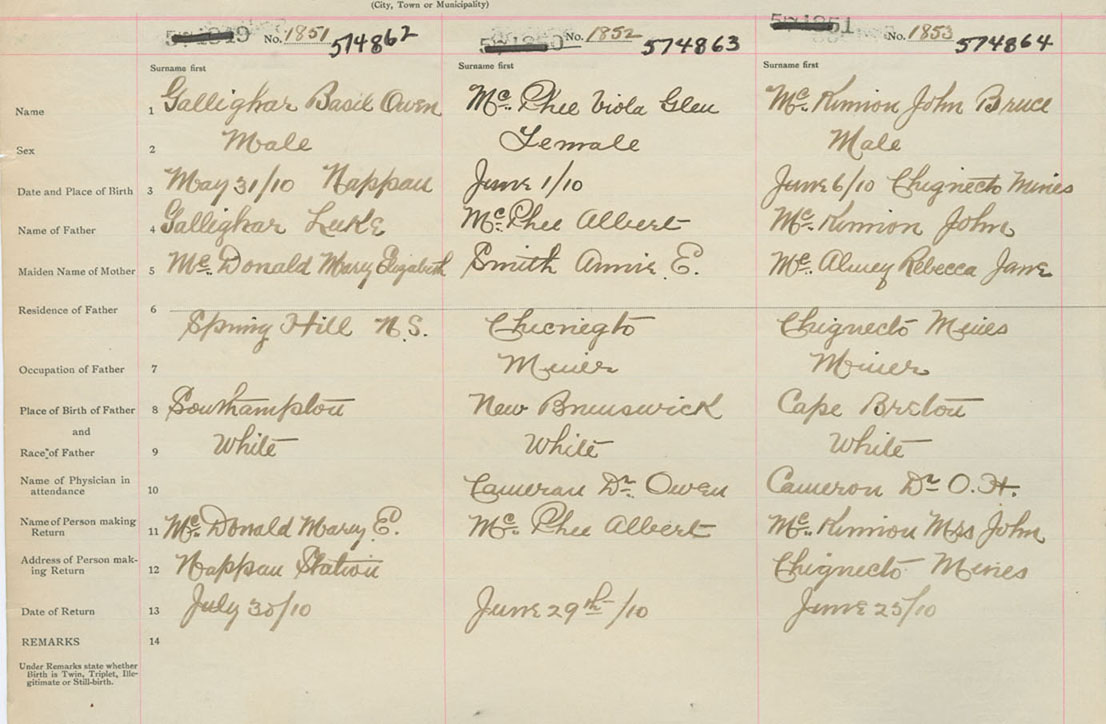 (City, Town or Municipality)
No. 1851 574862
No. 1852 574863
No. 1853 574864
Surname first Surname first Surname first
Name 1 Gallighar Basil Owen Mc. Phee Viola Glen Mc. Kinnon John Bruce
Sex 2 Male Female Male
Date and Place of Birth 3 May 31/10 Nappan June 1/10 June 6/10 Chignecto Mines
Name of Father 4 Gallighar Luke Mc. Phee Albert Mc. Kinnon John
Maiden Name of Mother 5 Mc. Donald Mary Elizabeth Smith Annie E. Mc. Rebecca Jane
Residence of Father 6 Spring Hill N.S. Chicnegto Chignecto Mines
Occupation of Father 7 Miner Miner
Place of Birth of Father 8 Southampton New Brunswick Cape Breton
and
Race of Father 9 White White White
Name of Physician in
attendance 10 Cameran Dr. Owen Cameron Dr O.H.
Name of Person making
Return 11 Mc. Donald Mary E. Mc. Phee Albert Mc. Kinnon Mrs John
Address of Person mak-
ing Return 12 Nappan Station Chignecto Mines
Date of Return 13 July 30/10 June 29th /10 June 25/10
REMARKS 14
Under Remarks state whether
Birth is Twin, Triplet, Ille-
gitimate or Still-birth.